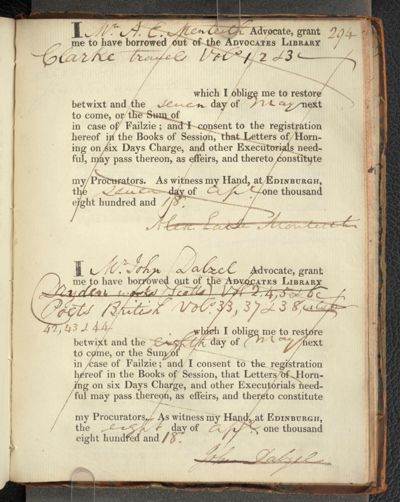 294
I Mr A. E. Monteith Advocate, grant
me to have borrowed out of the ADVOCATES LIBRARY
Clarke travels Vols 1, 2 & 3
which I oblige me to restore
betwixt and the seven day of May next
to come, or the Sum of
in case of Failzie; and I consent to the registration
hereof in the Books of Session, that Letters of Horn-
ing on six Days Charge, and other Executorials need-
ful, may pass thereon, as effeirs, and thereto constitute
my Procurators. As witness my Hand, at EDINBURGH,
the seven day of Apl one thousand
eight hundred and 18.
Alex Earle Monteith
I Mr John Dalzel Advocate, grant
me to have borrowed out of the ADVOCATES LIBRARY
Dryden works (Scotts) Vol 2, 4, 5 & 6
Poets British Vols 33, 37 & 38,
42, 43 & 44
which I oblige me to restore
betwixt and the eighth day of May next
to come, or the Sum of
in case of Failzie; and I consent to the registration
hereof in the Books of Session, that Letters of Horn-
ing on six Days Charge, and other Executorials need-
ful may pass thereon, as effeirs, and thereto constitute
my Procurators. As witness my Hand, at EDINBURGH,
the eight day of Apl one thousand
eight hundred and 18.
John Dalzel